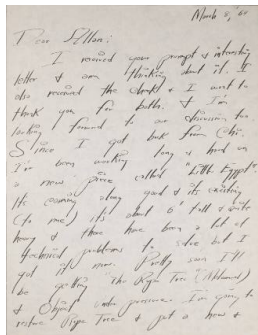 March 8, 6
Dear Ellen:
I received your prompt & interesting
letter & am thinking about it. I
also received the check & I want to
thank you for both. & I'm
looking forward to our discussion too.
Since I got back from Chi.
I'm been working long & hard on
a new piece called "Little Egypt".
Its coming along good & its exciting
(to me) it's about 6" tall & quite
heavy & there have been a lot of
technical problems to solve but I
got it now. Pretty soon I'll
be getting "The Rope Tree
& Object under pressure. I'm going to
restore Rope Tree & put a new